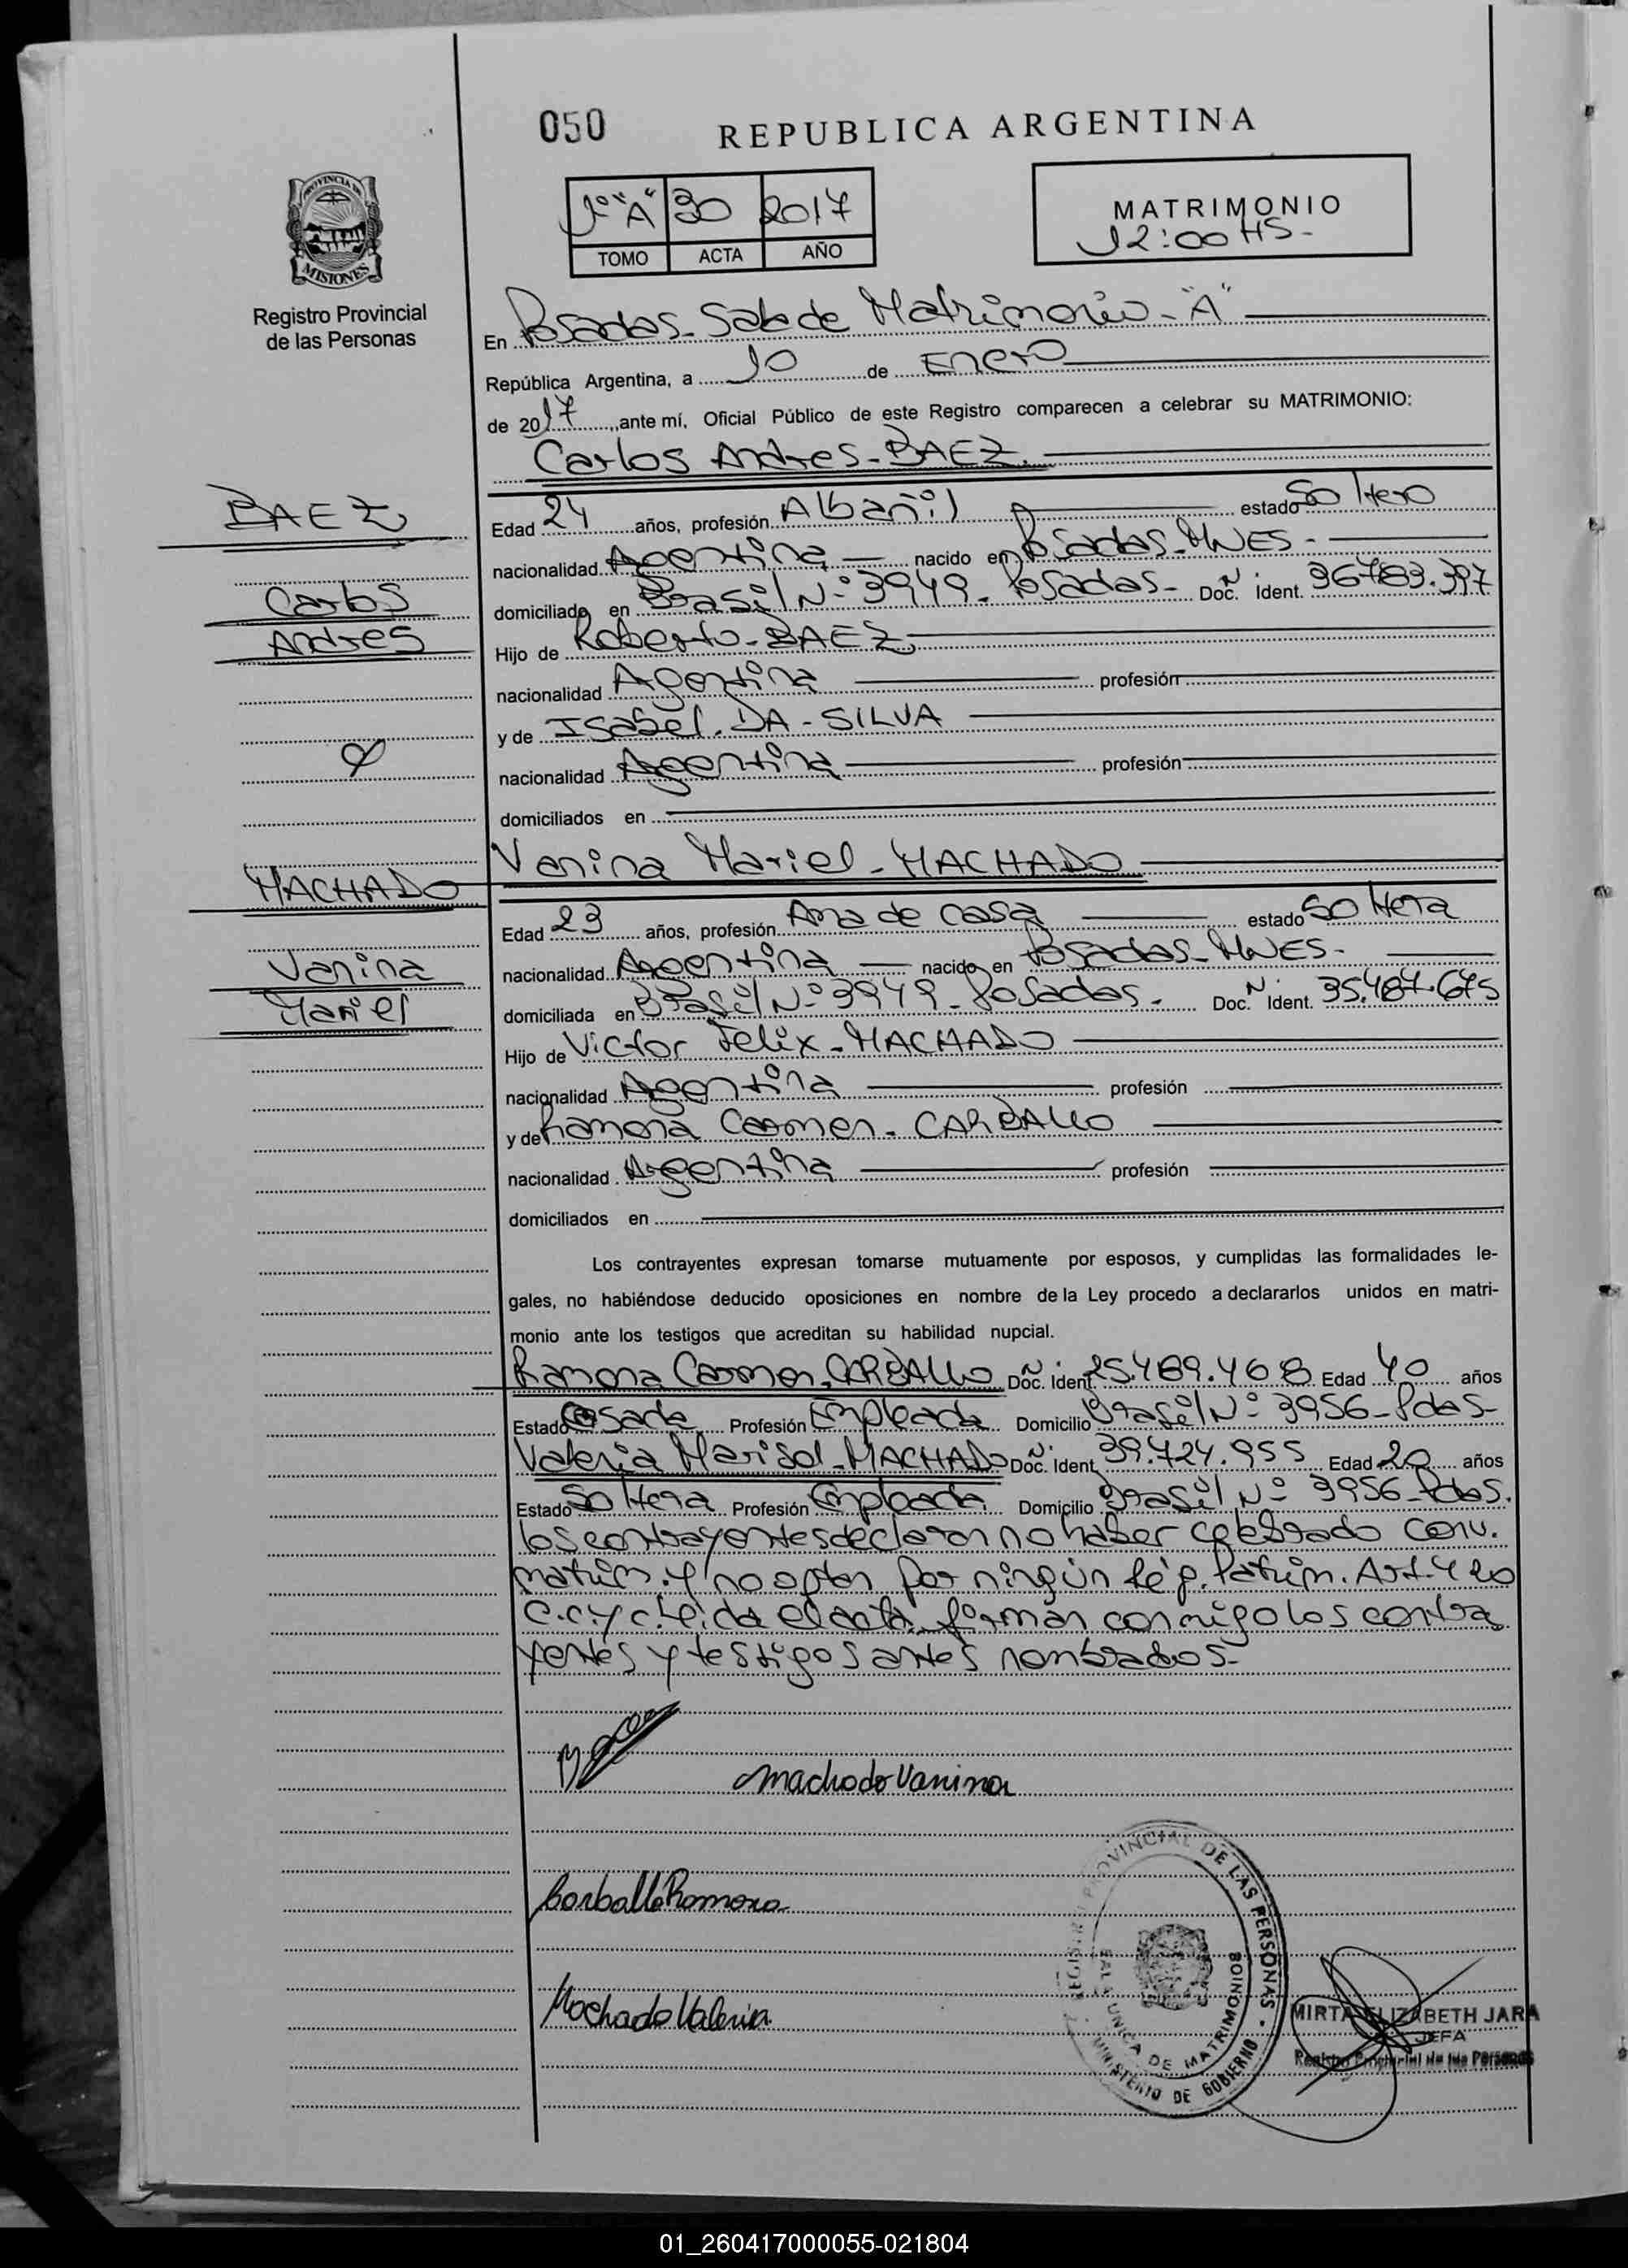 050
REPUBLICA ARGENTINA
PROVINCIA DE
MISIONES
Registro Provincial
de las Personas
1º "A" 30 2017
TOMO ACTA AÑO
MATRIMONIO
12:00 HS-
En Posadas- Sala de Matrimonio- "A"
República Argentina, a 10 de Enero
de 2017, ante mí, Oficial Público de este Registro comparecen a celebrar su MATRIMONIO:
Carlos Andres- BAEZ.
BAEZ
Carlos
Andres
Edad 24 años, profesión Albañil estado Soltero
nacionalidad Argentina nacido en Posadas- MNES-
domiciliado en Brasil Nº 3949- Posadas- Doc. N Ident. 36.783.397
Hijo de Roberto- BAEZ
nacionalidad Argentina profesión
y de Isabel. DA-SILVA
nacionalidad Argentina profesión
domiciliados en
Vanina Mariel- MACHADO
MACHADO
Vanina
Mariel
Edad 23 años, profesión Ama de casa estado Soltera
nacionalidad Argentina nacido en Posadas- MNES-
domiciliada en Brasil Nº 3949- Posadas- Doc. N Ident. 35.487.675
Hijo de Victor Felix- MACHADO
nacionalidad Argentina profesión
y de Ramona Carmen- CARBALLO
nacionalidad Argentina profesión
domiciliados en
Los contrayentes expresan tomarse mutuamente por esposos, y cumplidas las formalidades le-
gales, no habiéndose deducido oposiciones en nombre de la Ley procedo a declararlos unidos en matri-
monio ante los testigos que acreditan su habilidad nupcial.
Ramona Carmen. CARBALLO Doc. N Ident. 25.489.468 Edad 40 años
Estado Casada Profesión Empleada Domicilio Brasil Nº 3956- Pdas-
Valeria Marisol- MACHADO Doc. N Ident. 39.724.955 Edad 20 años
Estado Soltera Profesión Empleada Domicilio Brasil Nº 3956- Pdas.
los contrayentes declaran no haber celebrado Conv.
matrim. y no optan por ningún Rég. Patrim. Art. 420
C.C.y C. Leida el acta, firman conmigo los contra
yentes y testigos antes nombrados-
Machado Vanina
Carballo Ramona
Machado Valeria
REGISTRO PROVINCIAL DE LAS PERSONAS
SALA UNICA DE MATRIMONIOS
MINISTERIO DE GOBIERNO
MIRTA ELIZABETH JARA
JEFA
Registro Provincial de las Personas
01_260417000055-021804